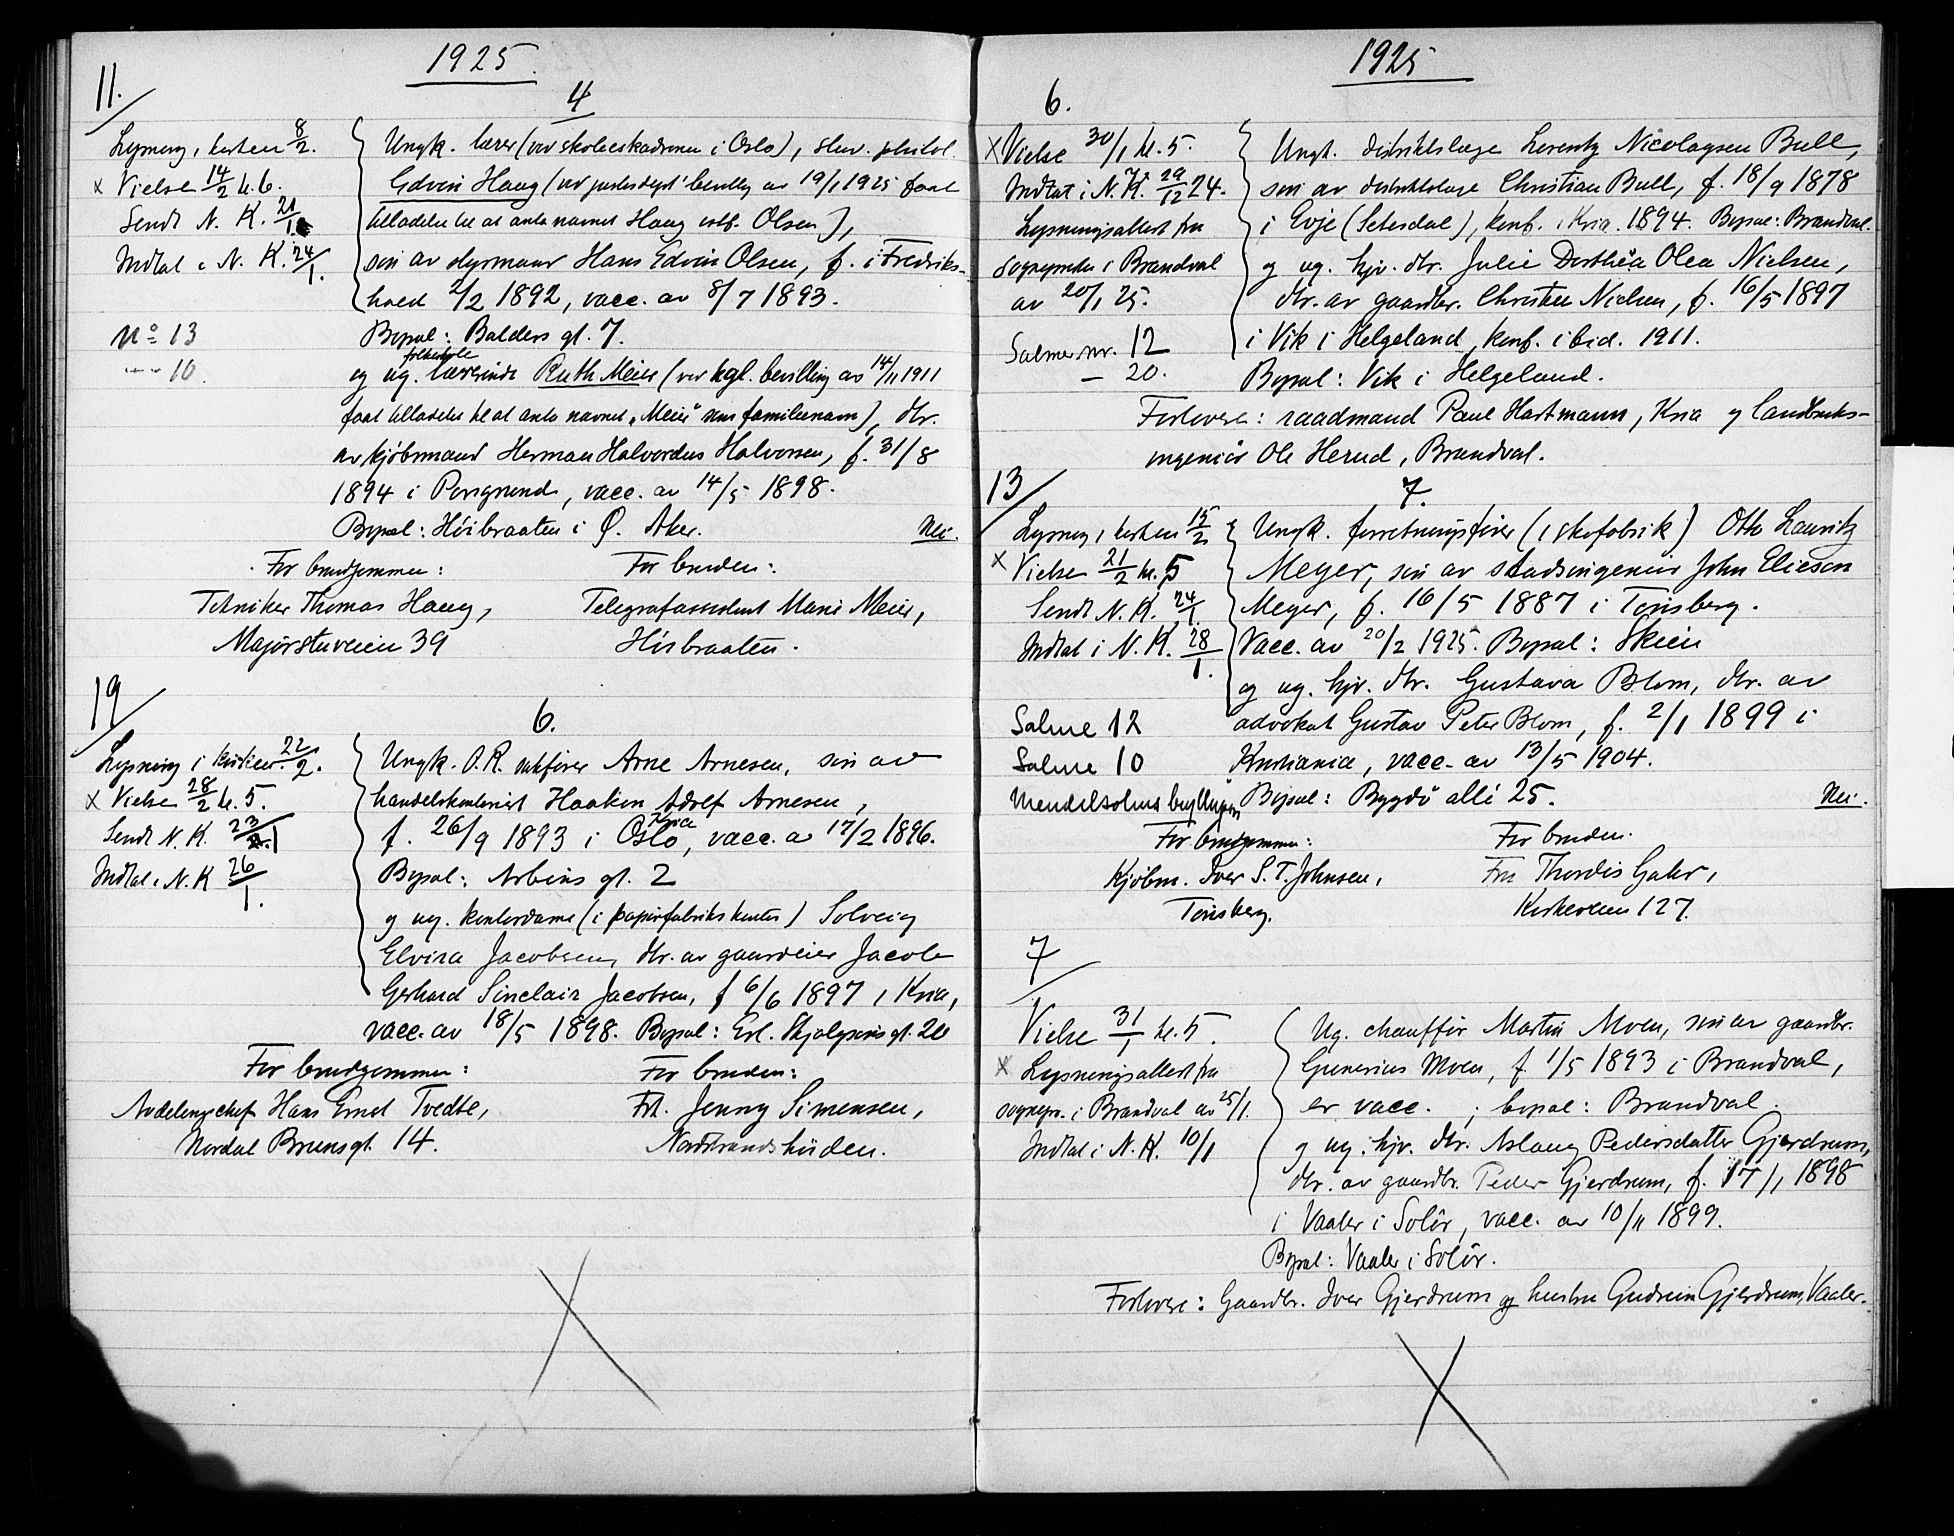 1925.
11.
4
Lysning i kirken 8/2.
x Vielse 14/2 kl. 6.
Sendt N. K. 21/1
Indtat i N. K. 24/1.
No 13
10.
Ungk. lærer (ved skoleeskadronen i Oslo), stud. philol.
Edvin Haug (ved justisdept' bevilling av 19/1 1925 faat
tilladelse til at anta navnet Haug istf. Olsen),
søn av styrmand Hans Edvin Olsen, f. i Fredriks-
hald 2/2 1892, vacc. av 8/7 1893.
Bopæl: Balders gt. 7.
folkeskole
og ug. lærerinde Ruth Meier (ved kgl. bevilling av 14/11 1911
faat tilladelse til at anta navnet "Meier" som familienavn), dtr.
av kjøbmand Herman Halvordus Halvorsen, f. 31/8
1894 i Porsgrund, vacc. av 14/5 1898.
Bopæl: Høibraaten i Ø. Aker. Nei.
For brudgommen: For bruden:
Tekniker Thomas Haug, Telegrafassistent Marie Meier,
Majorstuveien 39 Høibraaten.
19
6.
Lysning i kirken 22/2.
x Vielse 28/2 kl. 5.
Sendt N. K. 23/1
Indtat i N. K 26/1.
Ungk. O.R. sakfører Arne Arnesen, søn av
handelskontorist Haakon Adolf Arnesen,
Kria
f. 26/9 1893 i Oslo, vacc. av 17/2 1896.
Bopæl: Arbins gt. 2
og ug. kontordame (i papirfabrikskontor) Solveig
Elvira Jacobsen, dtr. av gaardeier Jacob
Gerhard Sinclair Jacobsen, f 6/6 1897 i Kria,
vacc. av 18/5 1898. Bopæl: Erl. Skjalgsøns gt. 20
For brudgommen: For bruden:
Avdelingschef Hans Ernst Tvedte, Frk. Jenny Simensen,
Nordal Brunsgt. 14. Nordstrandshøiden.
1925
6.
x Vielse 30/1 kl. 5.
Indtat i N. K. 29/12 24.
Lysningsattest fra
sogneprsten i Brandval
av 20/1 25.
Salme nr. 12
– 20.
Ungk. distriktslæge Lorentz Nicolaysen Bull,
søn av distriktslæge Christian Bull, f. 18/9 1878
i Evje (Setesdal), konf. i Kria. 1894. Bopæl: Brandval.
og ug. hjv. dtr. Julie Dorthea Olea Nielsen,
dtr. av gaardbr. Christen Nielsen, f. 16/5 1897
i Vik i Helgeland, konf. ibid. 1911.
Bopæl: Vik i Helgeland.
Forlovere: raadmand Paul Hartmann, Kria og landbruks-
ingeniør Ole Herud, Brandval.
13
7.
Lysning i kirken 15/2
x Vielse 21/2 kl. 5
Sendt N. K. 24/1.
Indtat i N. K. 28/1.
Salme 12
Salme 10
Mendelsohns bryllupsm
Ungk. forretningsfører (i skofabrik) Otto Lauritz
Meyer, søn av stadsingeniør John Elieson
Meyer, f. 16/5 1887 i Tønsberg.
Vacc. av 20/2 1925. Bopæl: Skien
og ug. hjv. dtr. Gustava Blom, dtr. av
advokat Gustav Peter Blom, f. 2/1 1899 i
Kristiania, vacc. av 13/5 1904.
Bopæl: Bygdø allé 25. Nei.
For brudgommen: For bruden.
Kjøbm. Iver S. T. Johnsen, Fru Thordis Galer,
Tønsberg. Kirkeveien 127.
7
Vielse 31/1 kl. 5.
x Lysningsattest fra
sognepr. i Brandval av 25/1.
Indtat i N. K. 10/1
Ug. chauffør Martin Moen, søn av gaardbr.
Gunerius Moen, f. 1/5 1893 i Brandval,
er vacc. ; bopæl: Brandval.
og ug. hjv. dtr. Aslaug Pedersdatter Gjerdrum,
dtr. av gaardbr. Peder Gjerdrum, f. 17/1 1898
i Vaaler i Solør, vacc. av 10/11 1899.
Bopæl: Vaaler i Solør.
Forlovere: Gaardbr. Iver Gjerdrum og hustru Gudrun Gjerdrum, Vaaler.